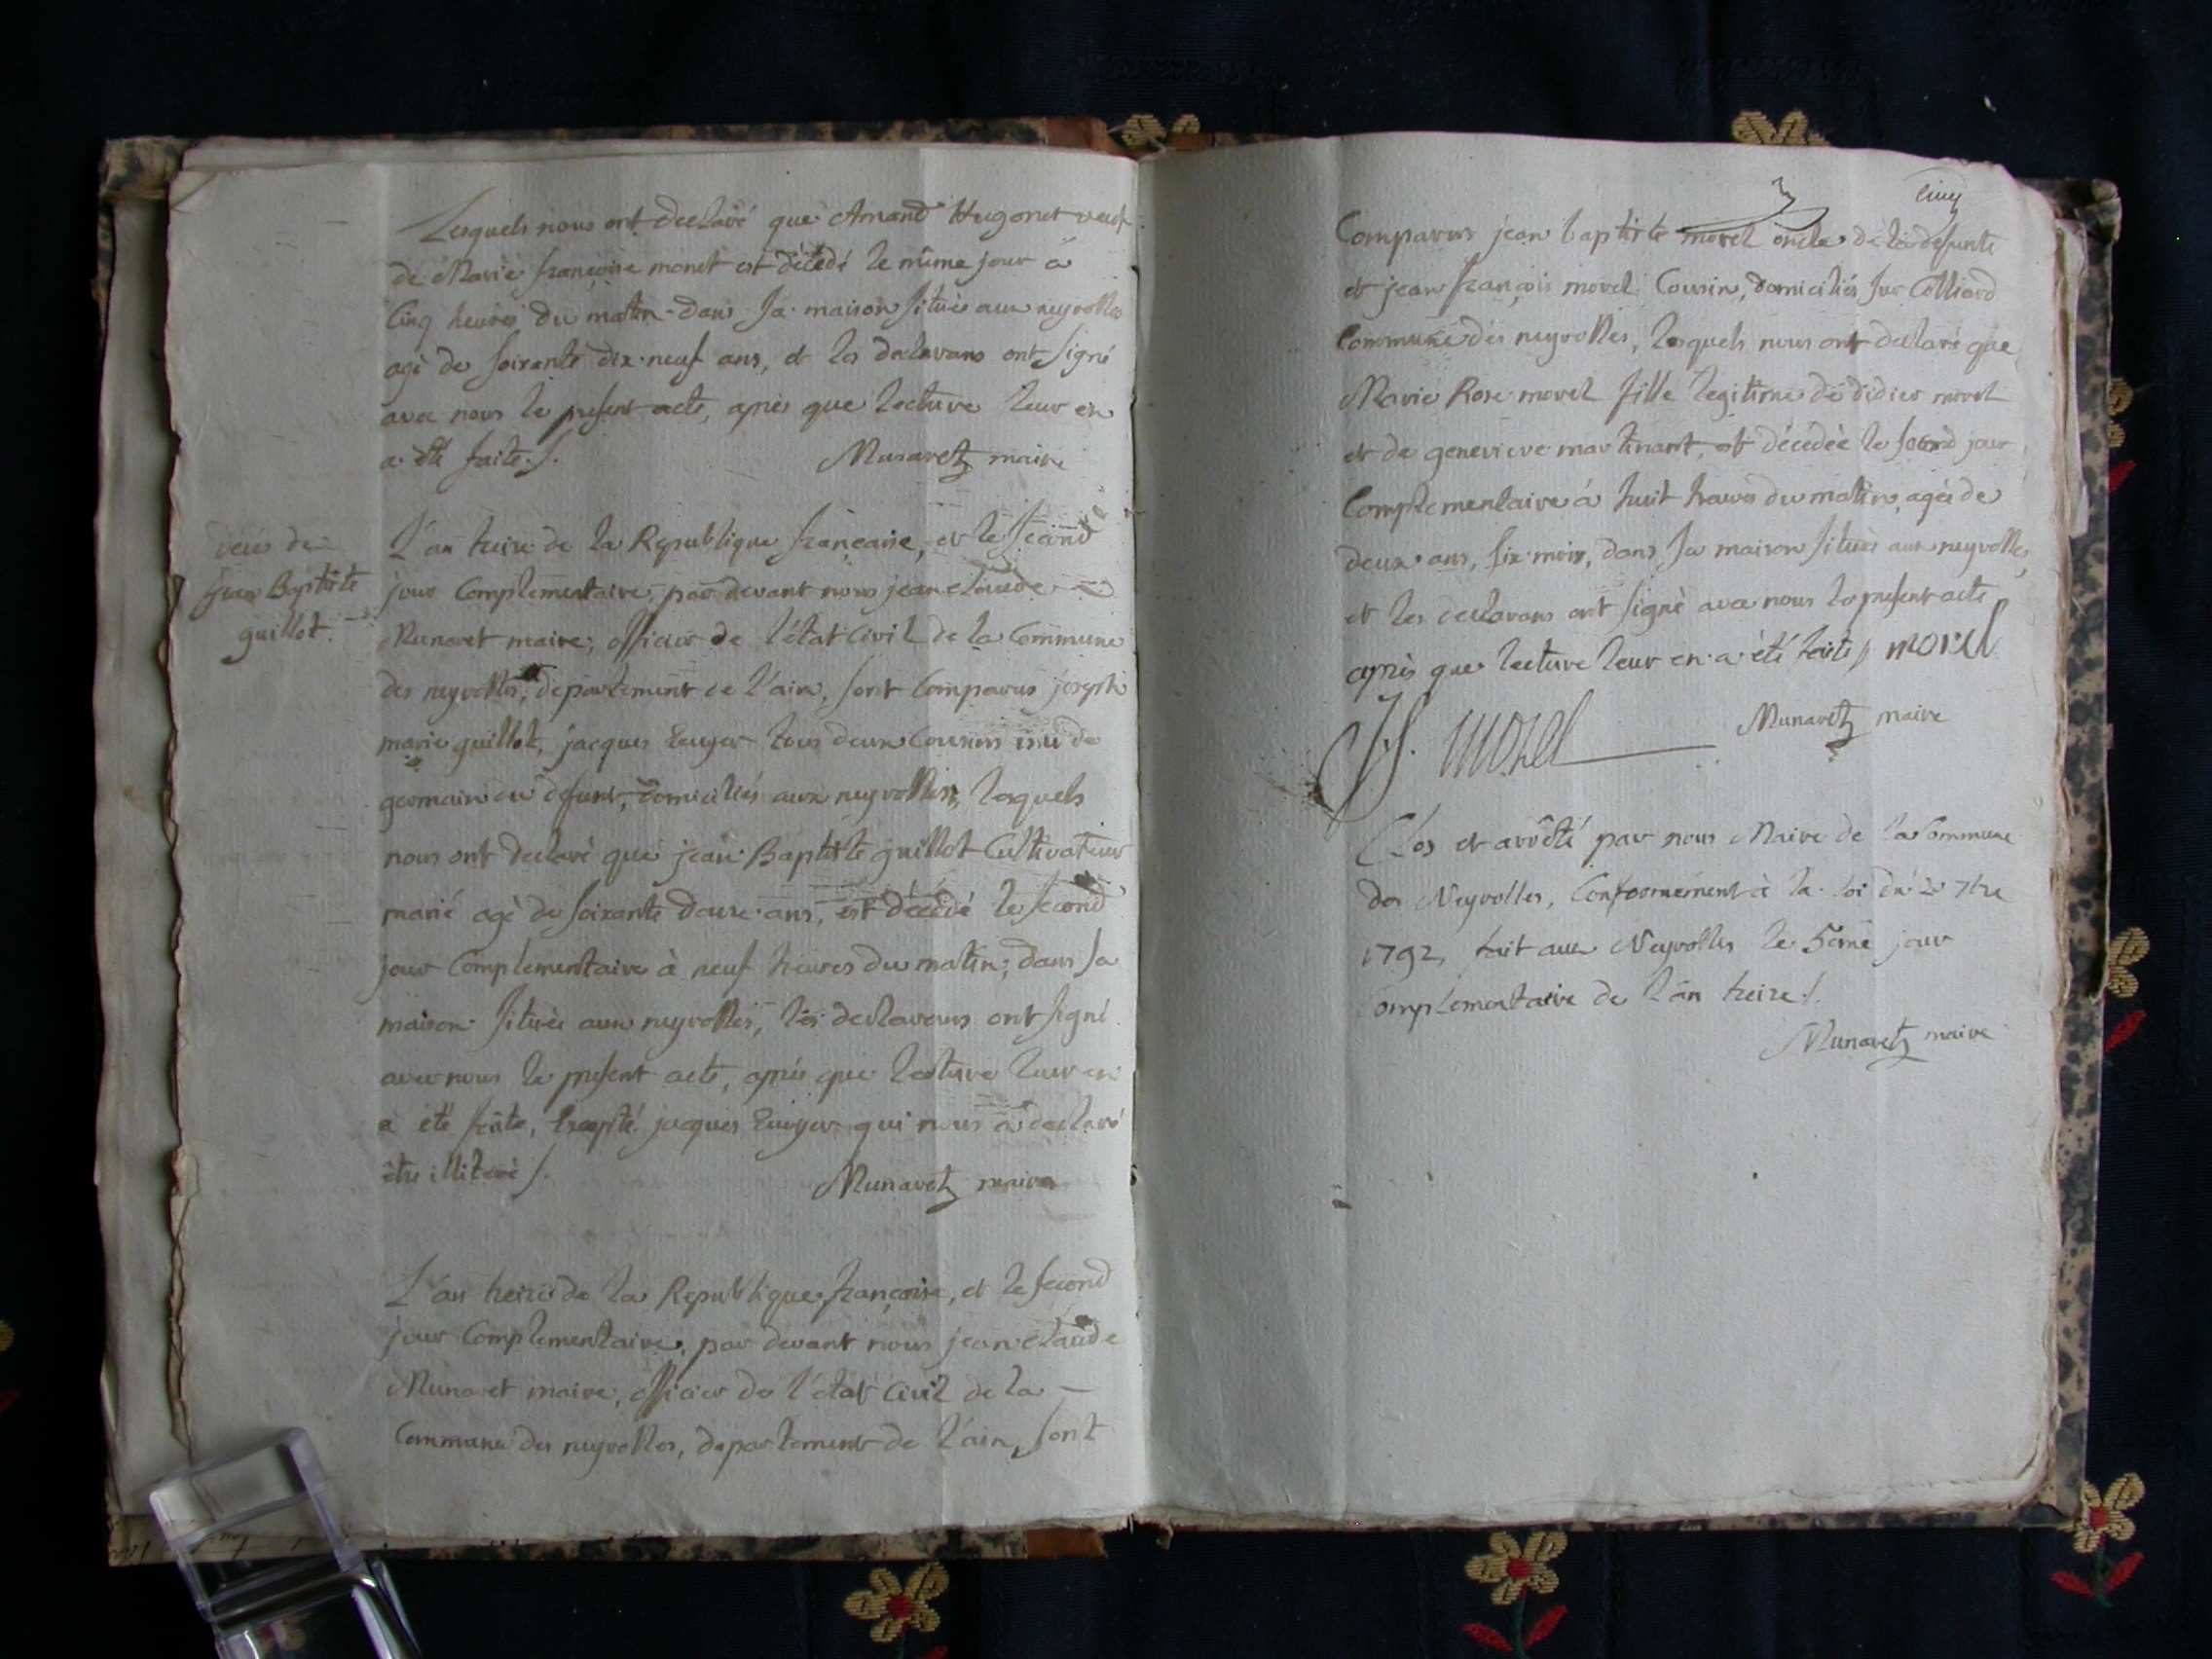 Lesquels nous ont declaré que Amand Hugonet veuf
de Marie françoise monet est décédé le même jour à
Cinq heures du matin dans sa maison située aux neyrolles
agé de soixante dix neuf ans, et les declarans ont signé
avec nous le present acte, après que lecture leur en
a été faite ./.
Munaret maire
décés de
Jean Baptiste
guillot.
L'an treize de la Republique française, et le second
jour Complementaire, par devant nous jean claude
Munaret maire, officier de l'état Civil de la Commune
des neyrolles, departement de l'ain, sont Comparus joseph
marie guillot, jacques tous deux Cousins issu de
germain du défunt, domiciliés aux neyrolles, lesquels
nous ont declaré que jean Baptiste guillot Cultivateur
marié agé de soixante douze ans, est décédé le second
jour Complementaire à neuf heures du matin, dans sa
maison située aux neyrolles, les declarans ont signé
avec nous le present acte, après que lecture leur en
a été faite, Excepté jacques qui nous a declaré
être illiteré ./.
Munaret maire
L'an treize de la Republique française, et le second
jour Complementaire, par devant nous jean claude
Munaret maire, officier de l'état Civil de la
Commune des neyrolles, departement de l'ain, sont
cinq
Comparus jean baptiste morel oncle de la defunte
et jean françois morel Cousin, domiciliés sur Colliard
Commune des neyrolles, lesquels nous ont declaré que
Marie Rose morel fille legitime de didier morel
et de genevieve martinant, est décédée le second jour
Complementaire à huit heures du matin, agée de
deux ans, six mois, dans sa maison située aux neyrolles,
et les declarans ont signé avec nous le present acte
après que lecture leur en a été faite ./. morel
Jf. morel
Munaret maire
Clos et arrêté par nous Maire de la Commune
des Neyrolles, Conformément à la loi du 7bre
1792, fait aux Neyrolles le 5eme jour
Complementaire de l'an treize ./.
Munaret maire